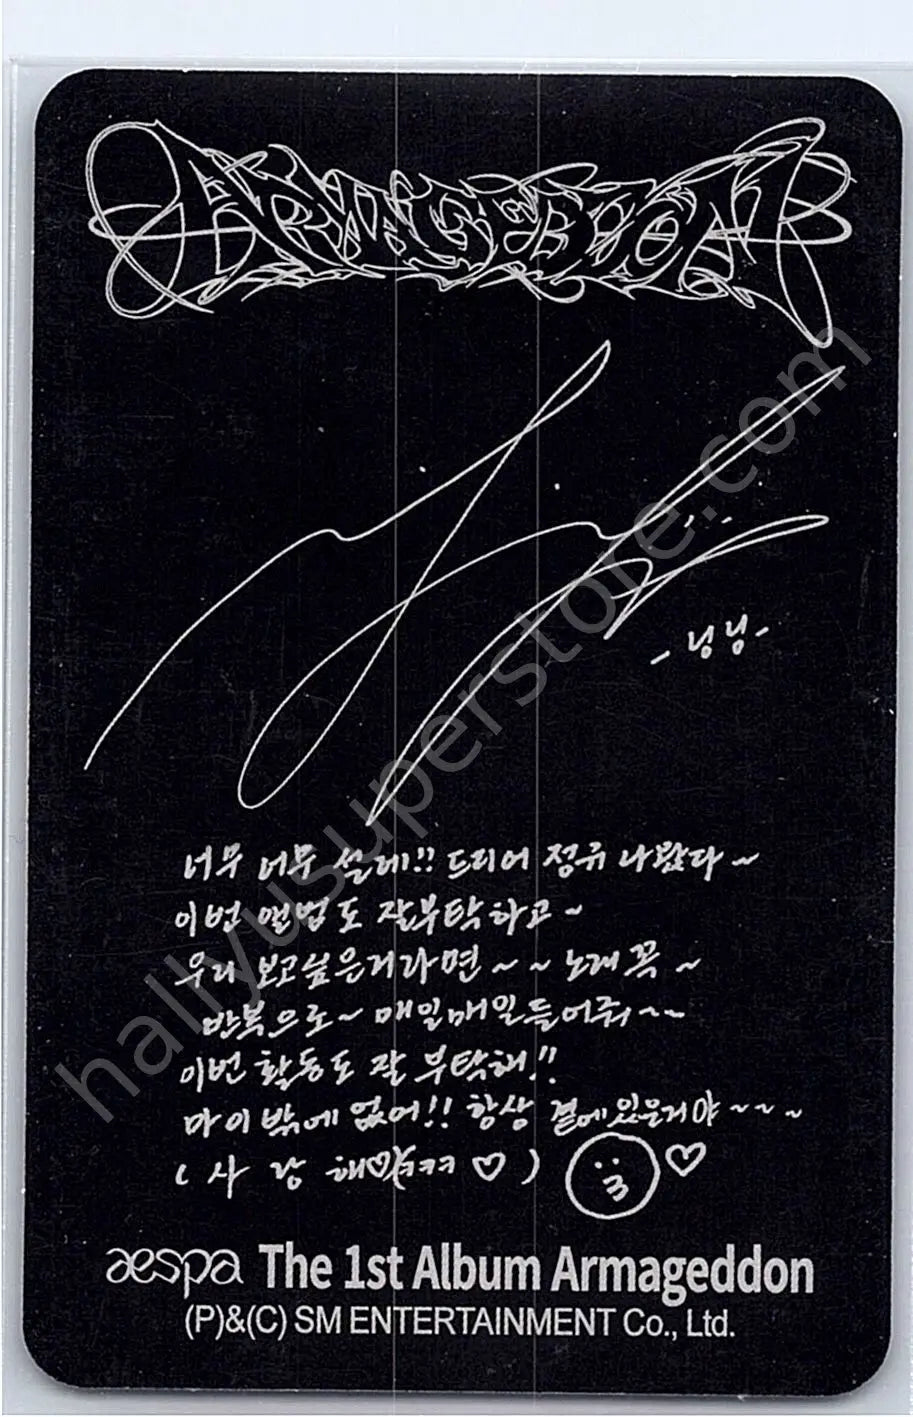 ARMAGEDDON
- 닝닝 -
너무 너무 설레!! 드디어 정규 나왔다 ~
이번 앨범도 잘부탁하고 ~
우리 보고싶은거라면 ~ ~ 노래 꼭 ~
반복으로~ 매일매일 들어줘 ~~
이번 활동도 잘 부탁해!!
마이밖에 없어!! 항상 곁에 있은거야 ~ ~ ~
( 사 랑 해♡ ㅋㅋㅋ ♡ ) ♡
aespa The 1st Album Armageddon
(P)&(C) SM ENTERTAINMENT Co., Ltd.
hallyusuperstore.com